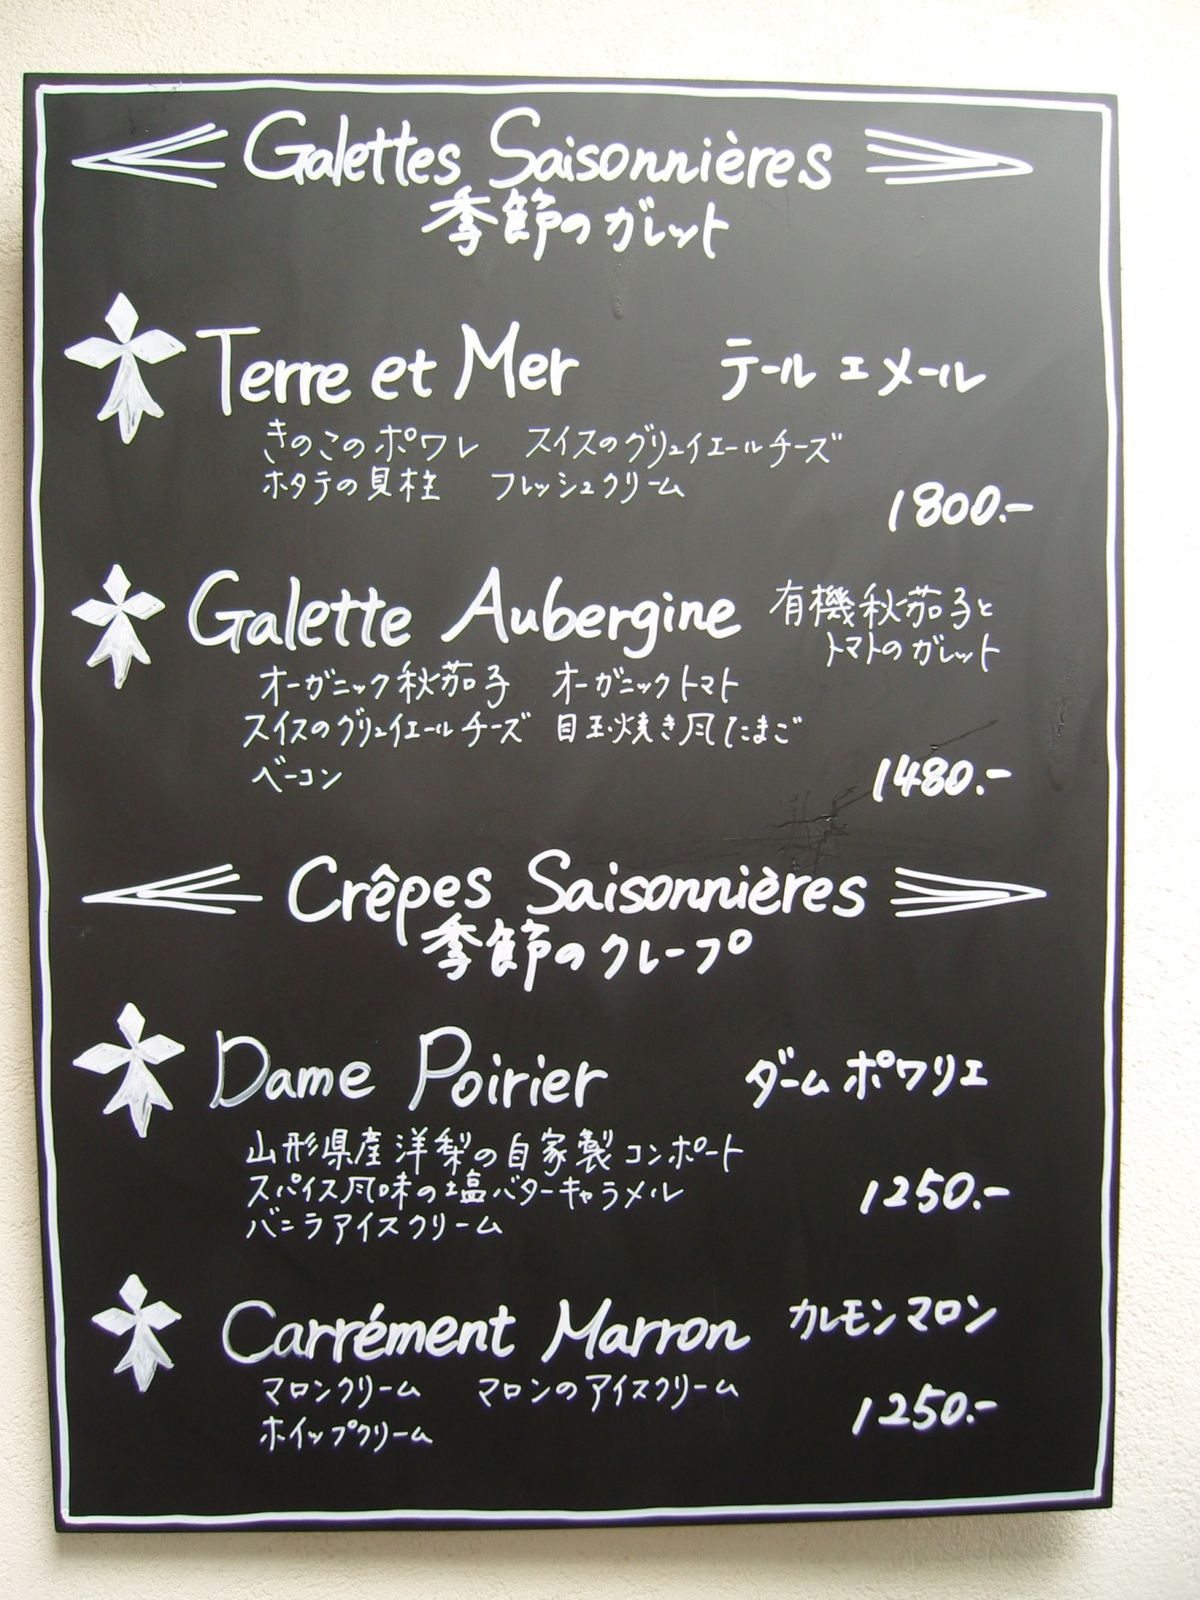 Galettes Saisonnières
季節のガレット
Terre et Mer テール エ メール
きのこのポワレ スイスのグリュイエールチーズ
ホタテの貝柱 フレッシュクリーム
1800.-
Galette Aubergine 有機秋茄子と
トマトのガレット
オーガニック秋茄子 オーガニックトマト
スイスのグリュイエールチーズ 目玉焼き風たまご
ベーコン
1480.-
Crêpes Saisonnières
季節のクレープ
Dame Poirier ダーム ポワリエ
山形県産洋梨の自家製コンポート
スパイス風味の塩バターキャラメル
1250.-
バニラアイスクリーム
Carrément Marron カレモン マロン
マロンクリーム マロンのアイスクリーム
1250.-
ホイップクリーム